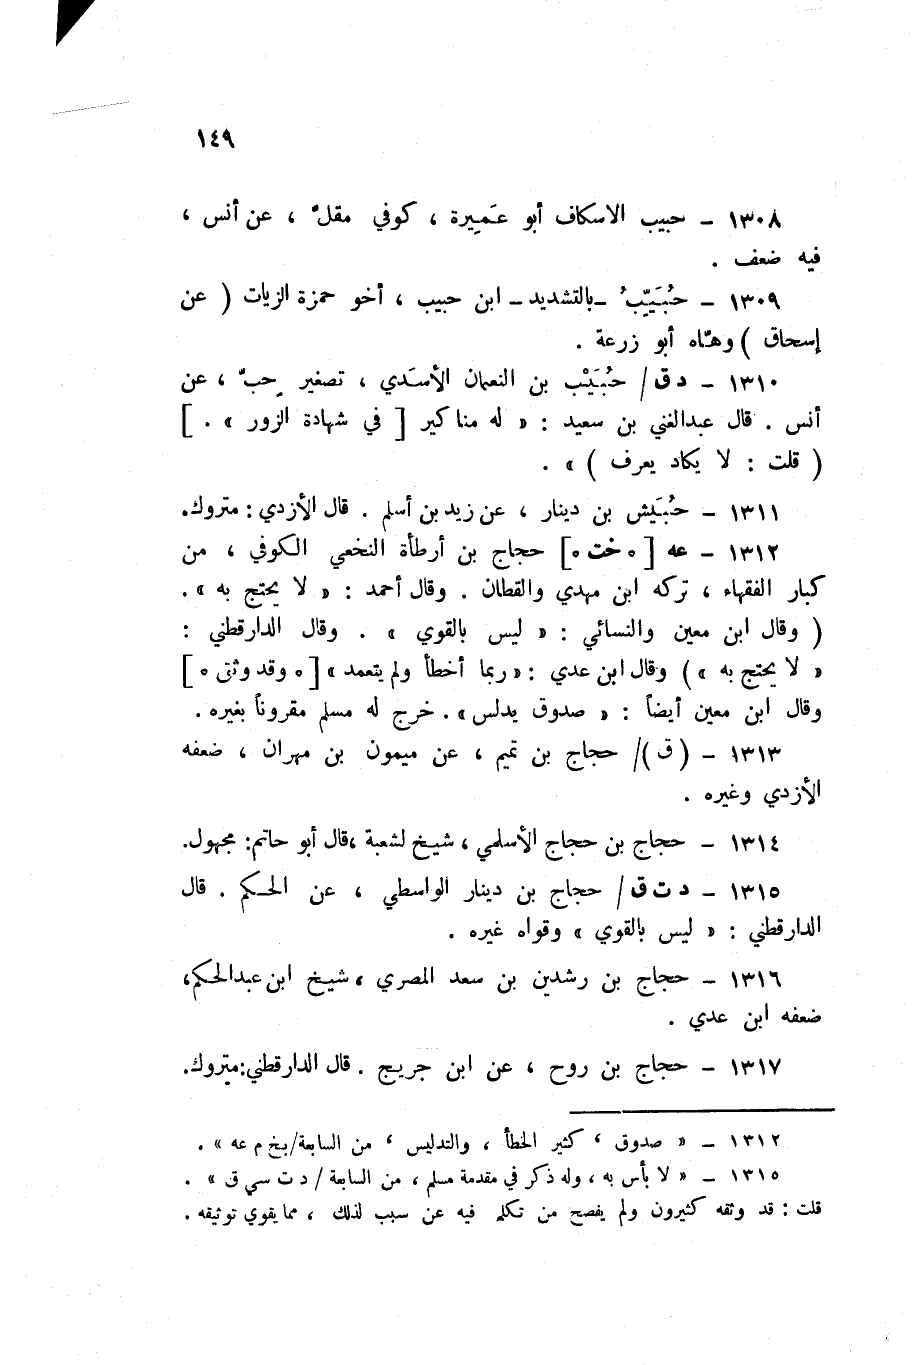 ١٤٩
١٣٠٨ ـ حبيب الاسكاف أبو عَميرة ، كوفي مقلّ ، عن أنس ،
فيه ضعف .
١٣٠٩ ـ حُبَيِّبُ ـ بالتشديد ـ ابن حبيب ، أخو حمزة الزيات ( عن
إسحاق ) وهّاه أبو زرعة .
١٣١٠ ـ د ق / حُبَيْب بن النعمان الأسَدي ، تصغير حِبّ ، عن
أنس . قال عبدالغني بن سعيد : « له مناكير [ في شهادة الزور » . ]
( قلت : لا يكاد يعرف ) » .
١٣١١ ـ حُبَيش بن دينار ، عن زيد بن أسلم . قال الأزدي : متروك.
١٣١٢ ـ عه [ ٥ خت ٥ ] حجاج بن أرطأة النخعي الكوفي ، من
كبار الفقهاء ، تركه ابن مهدي والقطان . وقال أحمد : « لا يحتج به » .
( وقال ابن معين والنسائي : « ليس بالقوي » . وقال الدارقطني :
« لا يحتج به » ) وقال ابن عدي : « ربما أخطأ ولم يتعمد » [ ٥ وقد وثق ٥ ]
وقال ابن معين أيضاً : « صدوق يدلس » . خرج له مسلم مقروناً بغيره .
١٣١٣ ـ ( ق ) / حجاج بن تميم ، عن ميمون بن مهران ، ضعفه
الأزدي وغيره .
١٣١٤ ـ حجاج بن حجاج الأسلمي ، شيخ لشعبة ،قال أبو حاتم: مجهول.
١٣١٥ ـ د ت ق / حجاج بن دينار الواسطي ، عن الحكم . قال
الدارقطني : « ليس بالقوي » وقواه غيره .
١٣١٦ ـ حجاج بن رشدين بن سعد المصري ، شيخ ابن عبدالحكم،
ضعفه ابن عدي .
١٣١٧ ـ حجاج بن روح ، عن ابن جريج . قال الدارقطني:متروك.
١٣١٢ ـ « صدوق ، كثير الخطأ ، والتدليس ، من السابعة/بخ م عه » .
١٣١٥ ـ « لا بأس به ، وله ذكر في مقدمة مسلم ، من السابعة / د ت سي ق » .
قلت : قد وثقه كثيرون ولم يفصح من تكلم فيه عن سبب لذلك ، مما يقوي توثيقه .